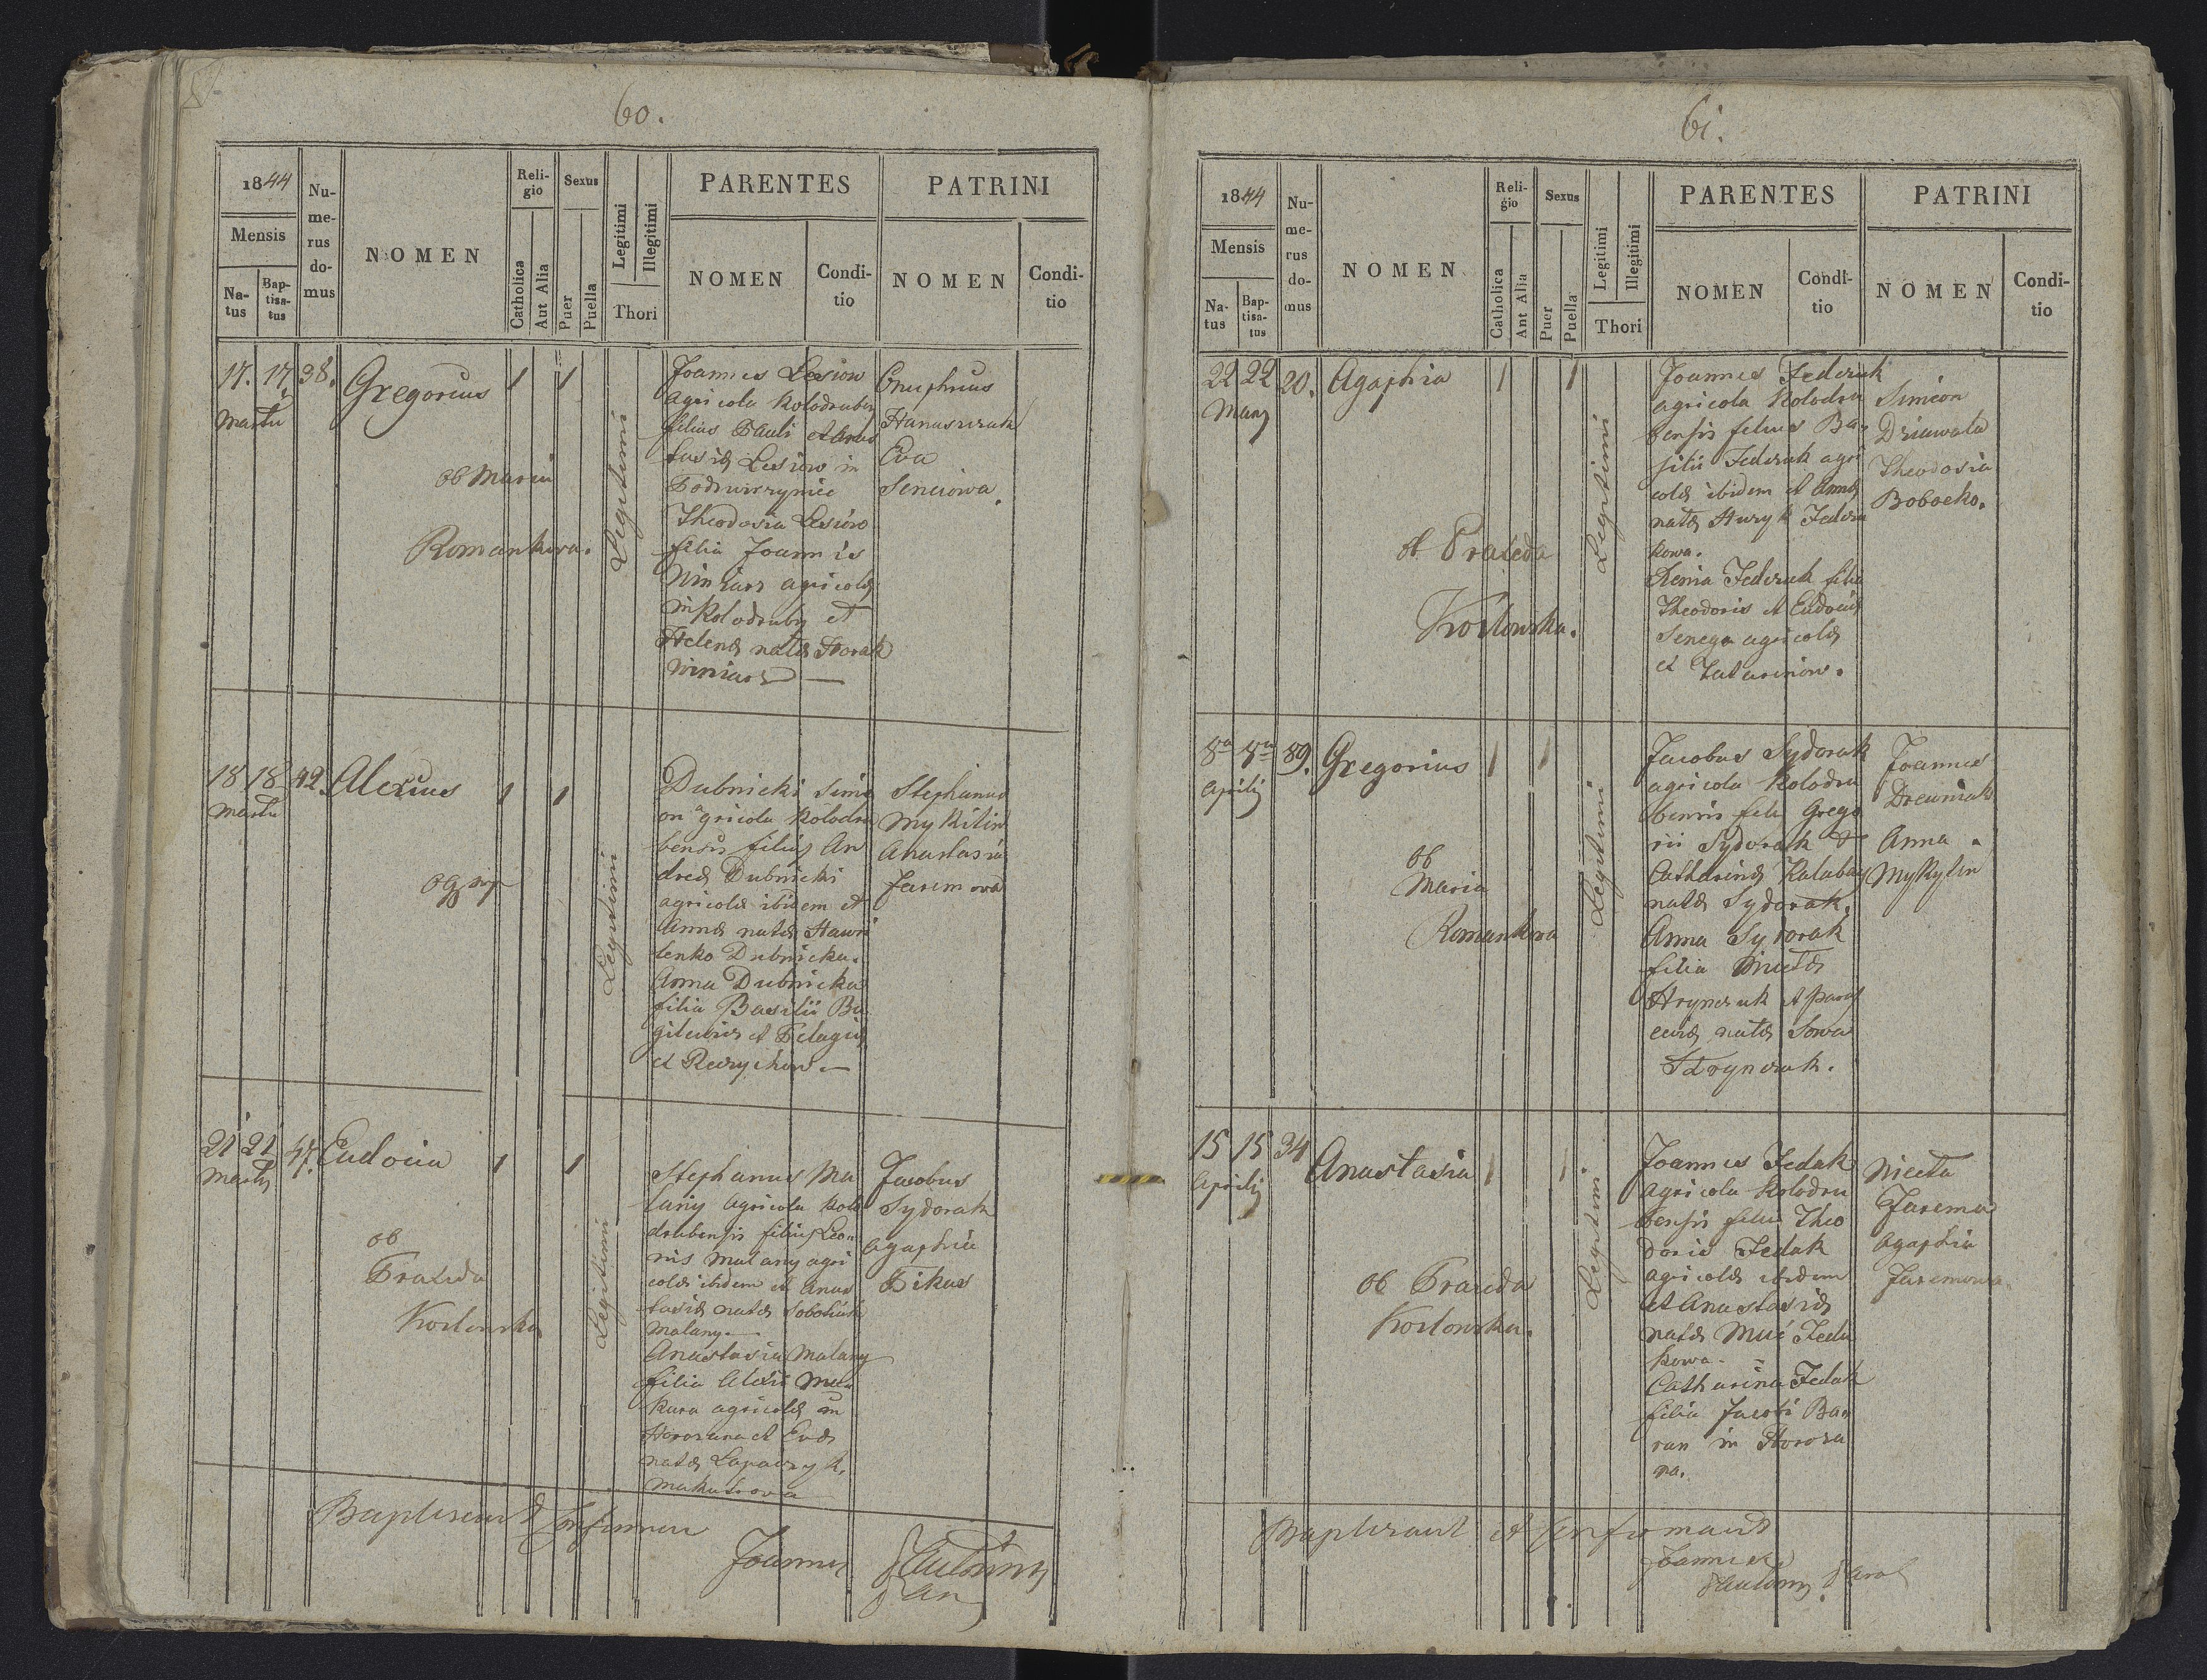 60.
1844
Mensis
Na-
tus
Bap-
tisa-
tus
Nu-
me-
rus
do-
mus
NOMEN
Reli-
gio
Catholica
Aut Alia
Sexus
Puer
Puella
Legitimi
Illegitimi
Thori
PARENTES
NOMEN
Condi-
tio
PATRINI
NOMEN
Condi-
tio
17. 17. 38. Gregorius 1 1
Martii
ob Maria
Romankova.
Legitimi
Joannes Lesiow
agricola Kolodruby
filius Pauli et Anas
tasiæ Lesiow in
Podzwierzyniec
Theodosia Lesiow
filia Joannis
Winiarz agricolæ
in Kolodruby et
Helenæ natæ Horak
Winiarz —
Onuphrius
Hanuszczak
Eva
Senciowa.
18 18 42. Alexius 1 1
Martii
Legitimi
Dubnicki Sime
on agricola Kolodru
bensis filius An
dreæ Dubnicki
agricolæ ibidem et
Annæ natæ Hawri
lenko Dubnicka.
Anna Dubnicka
filia Basilii
et Pelagiæ
Stephanus
Mykitin
Anastasia
Jaremowa
21 21 47. Eudocia 1 1
Martii
ob
Praxeda
Kozlowska
Legitimi
Stephanus Ma
lany agricola Kolo
drubensis filius Leo
nis Malany agri
colæ ibidem et Anas
tasiæ natæ
Malany —
Anastasia Malany
filia Alexii
agricolæ in
Horozana et Evæ
natæ
Jacobus
Sydorak
Agaphia
Pikas
Baptisavit et Confirmavit
Joannes
61.
1844
Mensis
Na-
tus
Bap-
tisa-
tus
Nu-
me-
rus
do-
mus
NOMEN
Reli-
gio
Catholica
Ant Alia
Sexus
Puer
Puella
Legitimi
Illegitimi
Thori
PARENTES
NOMEN
Condi-
tio
PATRINI
NOMEN
Condi-
tio
22 22 20. Agaphia 1 1
Marty
ob Praxeda
Kozlowska.
Legitimi
Joannes Federuk
agricola Kolodru
bensis filius Ba
silii Federuk agri
colæ ibidem et Annæ
natæ Huryk Federu
kowa.
Xenia Federuk filia
Theodoris et Eudociæ
Senega agricolæ
Simeon
Dziuwala
Theodosia
Bobecko.
8va 8va 89. Gregorius 1 1
Aprily
ob
Maria
Romankova
Legitimi
Jacobus Sydorak
agricola Kolodru
bensis filii Grego
rii Sydorak &
Catharinæ Kalabay
natæ Sydorak.
Anna Sydorak
filia Nicetæ
Hrynczuk et Paras
ceuæ natæ Sowa
Hrynczuk.
Joannes
Drewniak
Anna
Mykytyn
15 15 34 Anastasia 1 1
Aprily
ob Praxeda
Kozlowska.
Legitimi
Joannes Fedak
agricola Kolodru
bensis filius Theo
doris Fedak
agricolæ ibidem
et Anastasiæ
natæ Muć Feda
kowa.
Catharina Fedak
filia Jacobi Ba
ran in Horoza
na.
Niceta
Jarema
Agaphia
Jaremowa.
Baptisavit et Confirmavit
Joannes